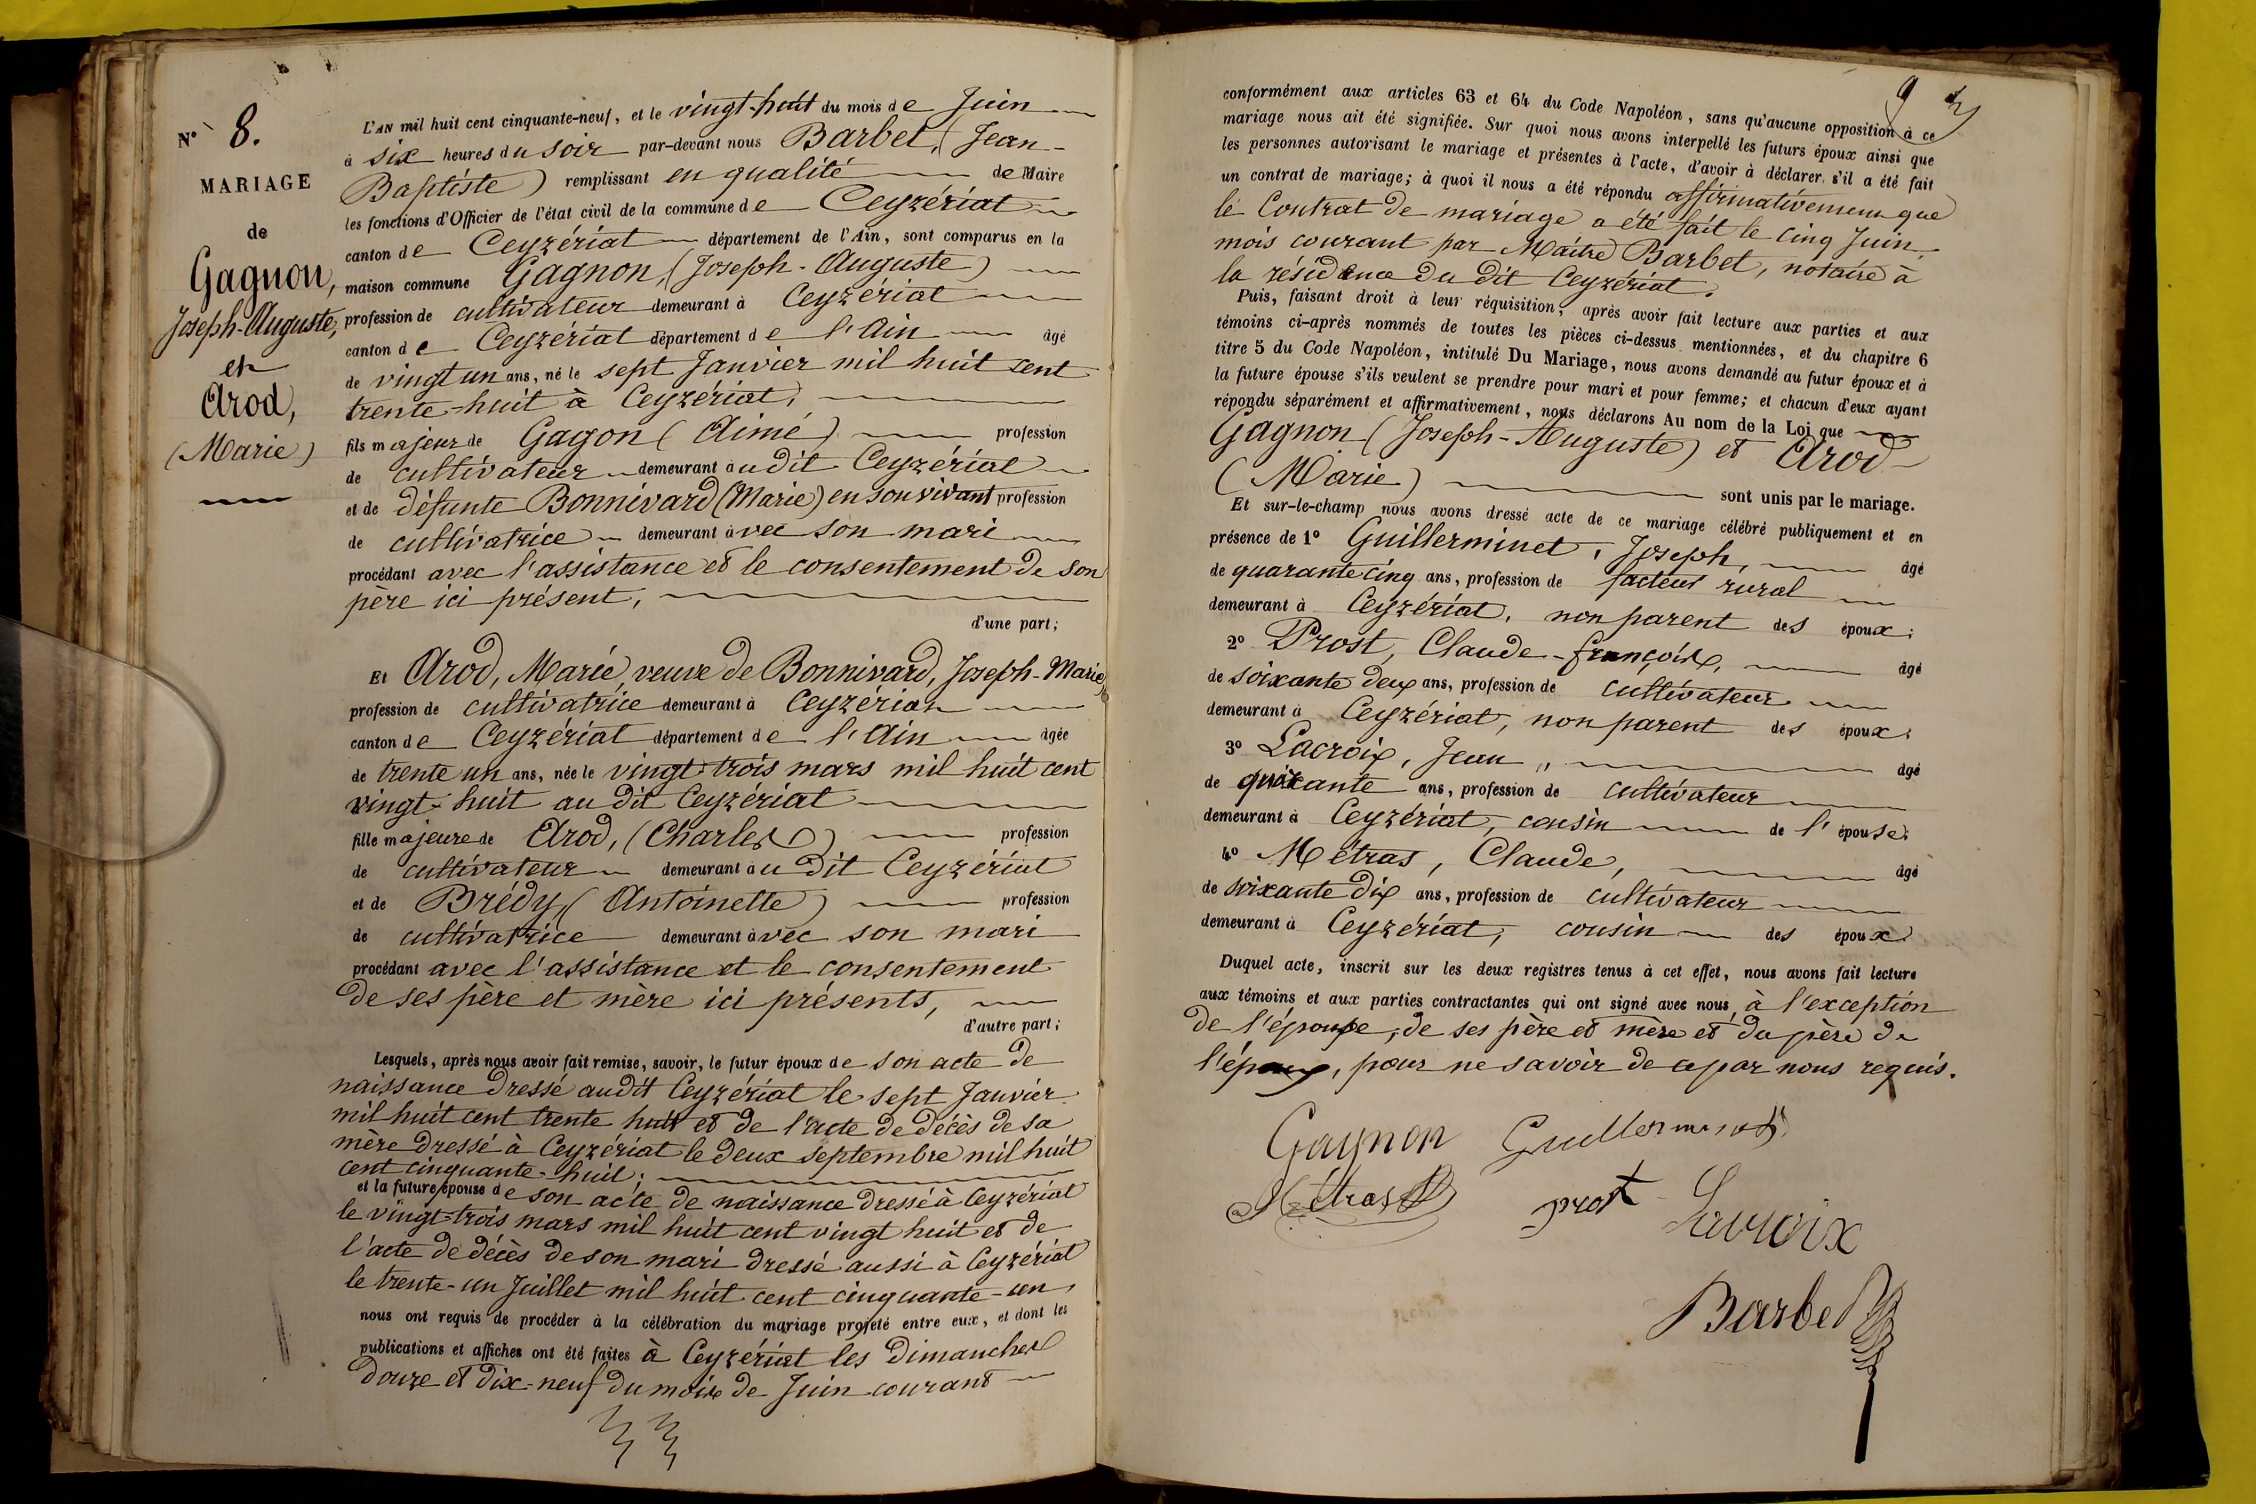 N° 8.
MARIAGE
de
Gagnon,
Joseph-Auguste,
et
Arod,
(Marie)
L'AN mil huit cent cinquante-neuf, et le vingt-huit du mois de Juin
à six heures du soir par-devant nous Barbet, (Jean-
Baptiste) remplissant en qualité de Maire
les fonctions d'Officier de l'état civil de la commune de Ceyzériat
canton de Ceyzériat département de l'Ain, sont comparus en la
maison commune Gagnon, (Joseph-Auguste)
profession de cultivateur demeurant à Ceyzériat
canton de Ceyzériat département de l'Ain âgé
de vingt un ans, né le sept Janvier mil huit cent
trente-huit à Ceyzériat,
fils majeur de Gagon (Aimé) profession
de cultivateur demeurant audit Ceyzériat
et de défunte Bonnivard (Marie) en son vivant profession
de cultivatrice demeurant avec son mari
procédant avec l'assistance et le consentement de son
père ici présent,
d'une part;
Et Arod, Marie, veuve de Bonnivard, Joseph-Marie,
profession de cultivatrice demeurant à Ceyzériat
canton de Ceyzériat département de l'Ain âgée
de trente un ans, née le vingt trois mars mil huit cent
vingt-huit au dit Ceyzériat
fille majeure de Arod, (Charles) profession
de cultivateur demeurant au dit Ceyzériat
et de Brédy, (Antoinette) profession
de cultivatrice demeurant avec son mari
procédant avec l'assistance et le consentement
de ses père et mère ici présents,
d'autre part;
Lesquels, après nous avoir fait remise, savoir, le futur époux de son acte de
naissance dressé audit Ceyzériat le sept Janvier
mil huit cent trente huit et de l'acte de décès de sa
mère dressé à Ceyzériat le deux septembre mil huit
cent cinquante-huit;
et la future épouse de son acte de naissance dressé à Ceyzériat
le vingt-trois mars mil huit cent vingt huit et de
l'acte de décès de son mari dressé aussi à Ceyzériat
le trente-un Juillet mil huit cent cinquante-un,
nous ont requis de procéder à la célébration du mariage projeté entre eux, et dont les
publications et affiches ont été faites à Ceyzériat les Dimanches
douze et dix-neuf du mois de Juin courant
9
conformément aux articles 63 et 64 du Code Napoléon, sans qu'aucune opposition à ce
mariage nous ait été signifiée. Sur quoi nous avons interpellé les futurs époux ainsi que
les personnes autorisant le mariage et présentes à l'acte, d'avoir à déclarer s'il a été fait
un contrat de mariage; à quoi il nous a été répondu affirmativement que
le Contrat de mariage a été fait le cinq Juin,
mois courant par Maître Barbet, notaire à
la résidence du dit Ceyzériat.
Puis, faisant droit à leur réquisition, après avoir fait lecture aux parties et aux
témoins ci-après nommés de toutes les pièces ci-dessus mentionnées, et du chapitre 6
titre 5 du Code Napoléon, intitulé Du Mariage, nous avons demandé au futur époux et à
la future épouse s'ils veulent se prendre pour mari et pour femme; et chacun d'eux ayant
répondu séparément et affirmativement, nous déclarons Au nom de la Loi que
Gagnon (Joseph-Auguste) et Arod
(Marie) sont unis par le mariage.
Et sur-le-champ nous avons dressé acte de ce mariage célébré publiquement et en
présence de 1° Guillerminet, Joseph, âgé
de quarante cinq ans, profession de facteur rural
demeurant à Ceyzériat, non parent des époux;
2° Prost, Claude-françois, âgé
de soixante deux ans, profession de cultivateur
demeurant à Ceyzériat, non parent des époux;
3° Lacroix, Jean, âgé
de ans, profession de cultivateur
demeurant à Ceyzériat, cousin de l'épouse;
4° Métras, Claude, âgé
de soixante dix ans, profession de cultivateur
demeurant à Ceyzériat, cousin des époux.
Duquel acte, inscrit sur les deux registres tenus à cet effet, nous avons fait lecture
aux témoins et aux parties contractantes qui ont signé avec nous, à l'exception
de l'épouse, de ses père et mère et du père de
l'époux, pour ne savoir de ce par nous requis.
Gagnon Guillerminet
Métras prost Lacroix
Barbet